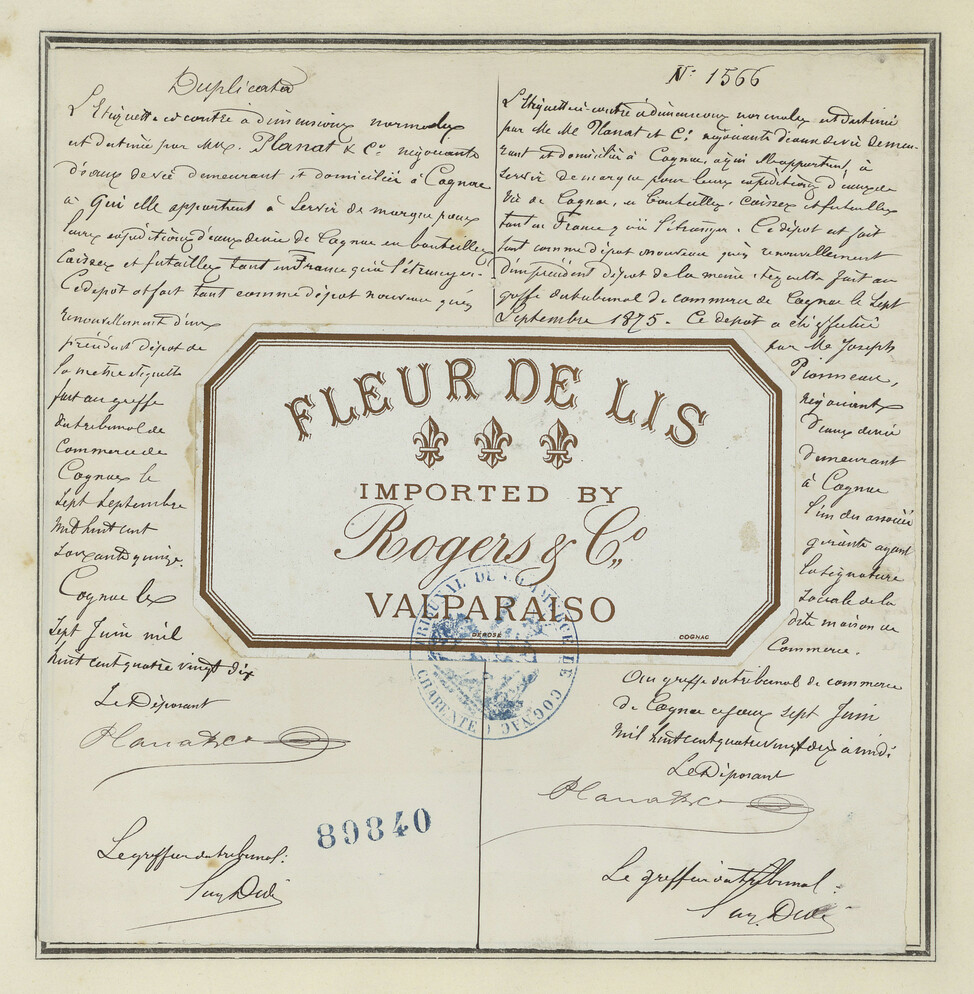 Duplicata
L'Etiquette ci contre à dimensions normales
est destinée par MM. Planat & Cie négociants
d'eaux de vie demeurant et domiciliés à Cognac
à qui elle appartient à servir de marque pour
leurs expéditions d'eaux de vie de Cognac en bouteilles
Caisses et futailles tant en France qu'à l'étranger.
Ce dépôt est fait tant comme dépôt nouveau qu'en
renouvellement d'un
précédent dépôt de
la même étiquette
fait au greffe
du tribunal de
Commerce de
Cognac le
Sept Septembre
Mil huit cent
Soixante quinze.
Cognac le
Sept Juin mil
huit cent quatre vingt dix
Le Déposant
Planat & Co
Le greffier du tribunal:
N: 1566
L'Etiquette ci-contre à dimensions normales est destinée
par MM. Planat et Cie négociants d'eaux de vie demeu-
rant et domiciliés à Cognac, à qui elle appartient, à
servir de marque pour leurs expéditions d'eaux de
Vie de Cognac, en bouteilles, caisses et futailles
tant en France qu'à l'étranger. Ce dépôt est fait
tant comme dépôt nouveau qu'en renouvellement
d'un précédent dépôt de la même étiquette fait au
greffe du tribunal de commerce de Cognac le Sept
Septembre 1875. Ce dépôt a été effectué
par Mr Joseph
Pionneau,
négociant
d'eaux de vie
demeurant
à Cognac
l'un des associés
gérants ayant
la signature
sociale de la
dite maison de
Commerce.
Au greffe du tribunal de commerce
de Cognac ce jour sept Juin
Mil huit cent quatre vingt dix à midi
Le Déposant
Planat & Co
Le greffier du tribunal:
FLEUR DE LIS
IMPORTED BY
Rogers & Co,,
VALPARAISO
DEROSE COGNAC
TRIBUNAL DE COMMERCE DE COGNAC
CHARENTE
89840